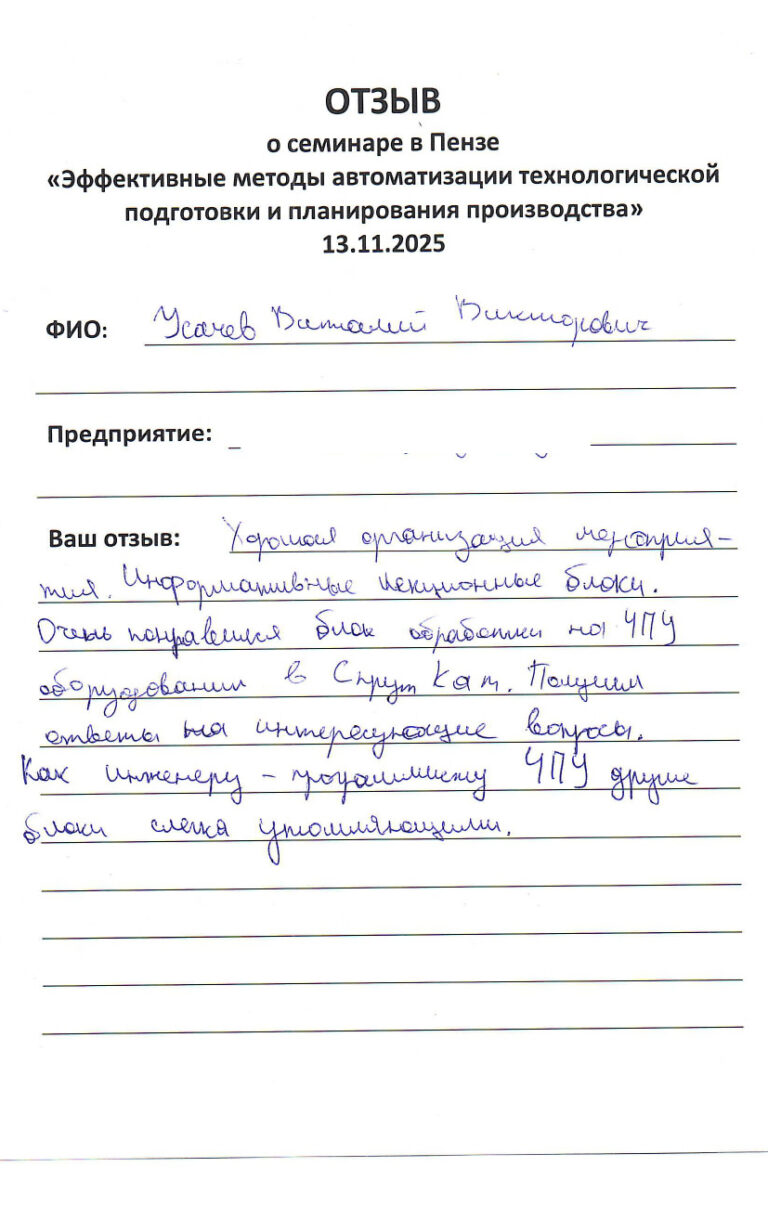 ОТЗЫВ
о семинаре в Пензе
«Эффективные методы автоматизации технологической
подготовки и планирования производства»
13.11.2025
ФИО: Усачев Виталий Викторович
Предприятие:
Ваш отзыв: Хорошая организация мероприя-
тия. Информативные лекционные блоки.
Очень понравился блок обработки на ЧПУ
оборудовании в Спрут Кам. Получил
ответы на интересующие вопросы.
Как инженеру - программисту ЧПУ другие
блоки слегка утомляющими.